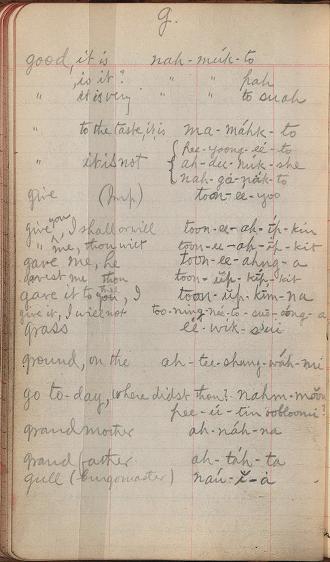 g.
good, it is nah-múk-to
" , is it? " " hah
" it is very " " to suah
" to the taste, it is ma-máhk-to
" it is not { pee-yoong-ee-to
ah-dee-nik-she
nah-ga-nák-to
give (Imp) toon-ee-yoo
give you, I shall or will toon-ee-ah-íp-kin
" me, thou wilt toon-ee-ah-íp-kit
gave me, he toon-ee-ahng-a
gavest me thou toon-úp-kip-kit
gave it to you, I toon-úp-kim-na
give it, I will not too-ning-nee-to-suo-ong-a
grass ee-wik-suē
ground, on the ah-tee-shung-wáh-ni
go to-day, where didst thou? nahm-moon
pee-ii-tin
grandmother ah-náh-na
grandfather ah-táh-ta
gull (burgomaster) naú-ī-á